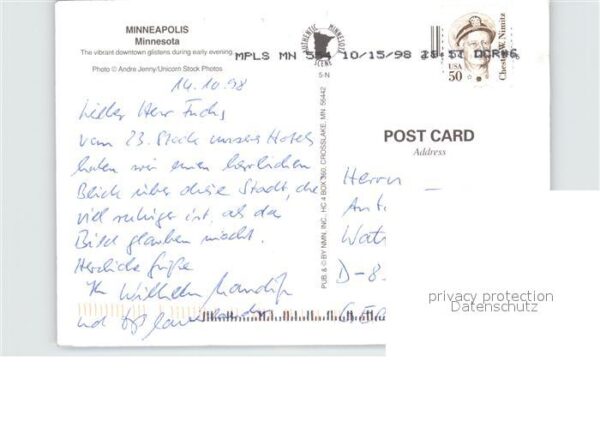 MINNEAPOLIS
Minnesota
The vibrant downtown glistens during early evening
Photo © Andre Jenny/Unicorn Stock Photos
AUTHENTIC MINNESOTA SCENE
5-N
MPLS MN 554 10/15/98
USA
50
Chester W. Nimitz
14.10.98
Lieber Herr Fuchs
vom 23. Stock unseres Hotels
haben wir einen herrlichen
Blick über diese Stadt, die
viel ruhiger ist, als das
Bild glauben macht.
Herzliche Grüße
Ihr Wilhelm
und
PUB. & © BY NMN, INC., HC 4 BOX 360, CROSSLAKE, MN 56442
POST CARD
Address
Herrn
D-8
privacy protection
Datenschutz